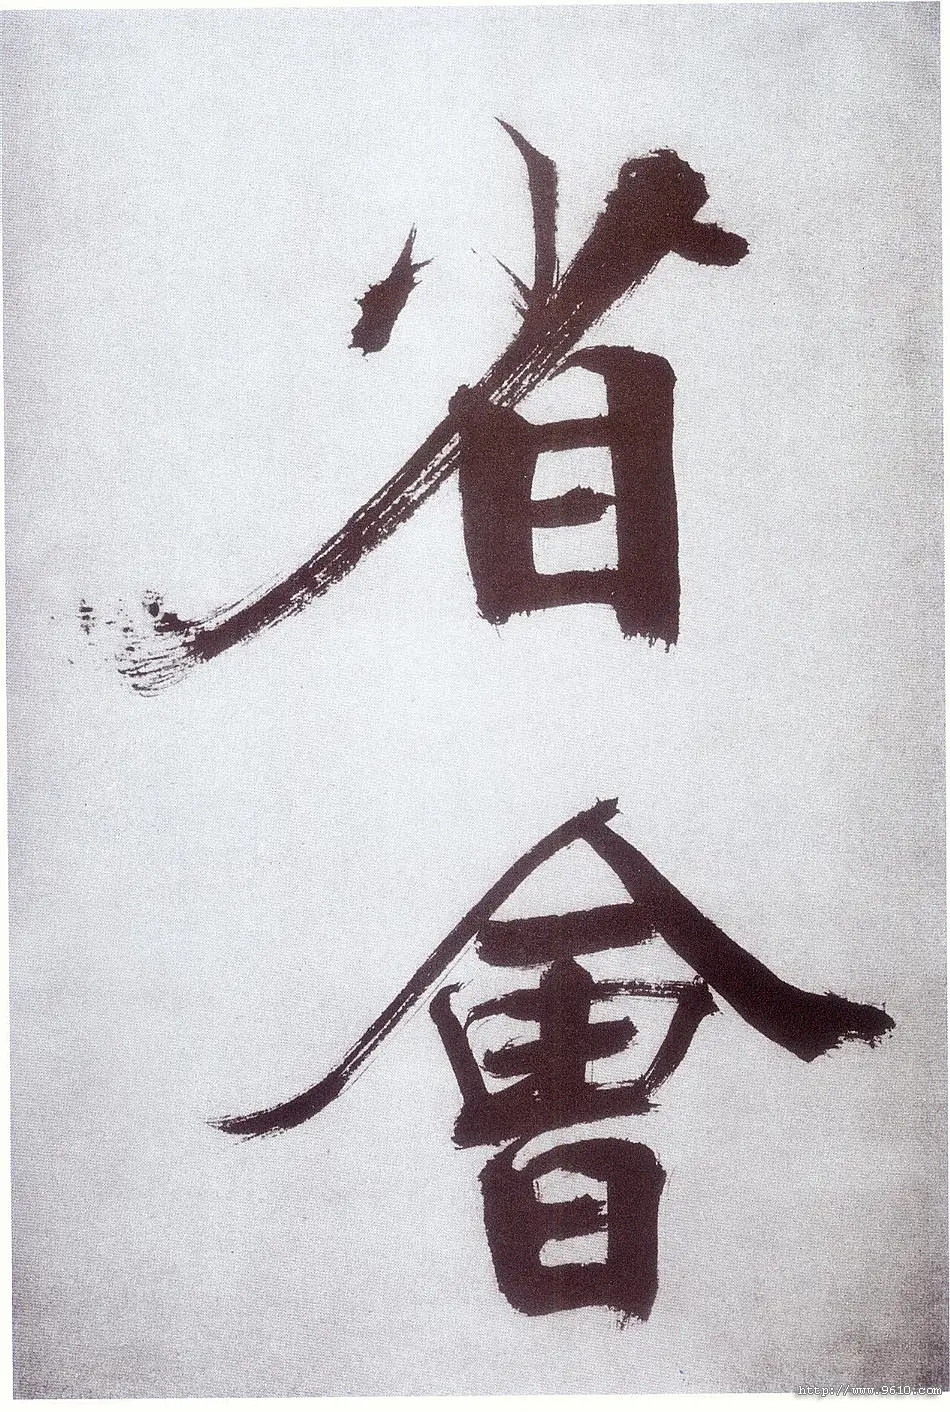 省會
http://www.9610.com